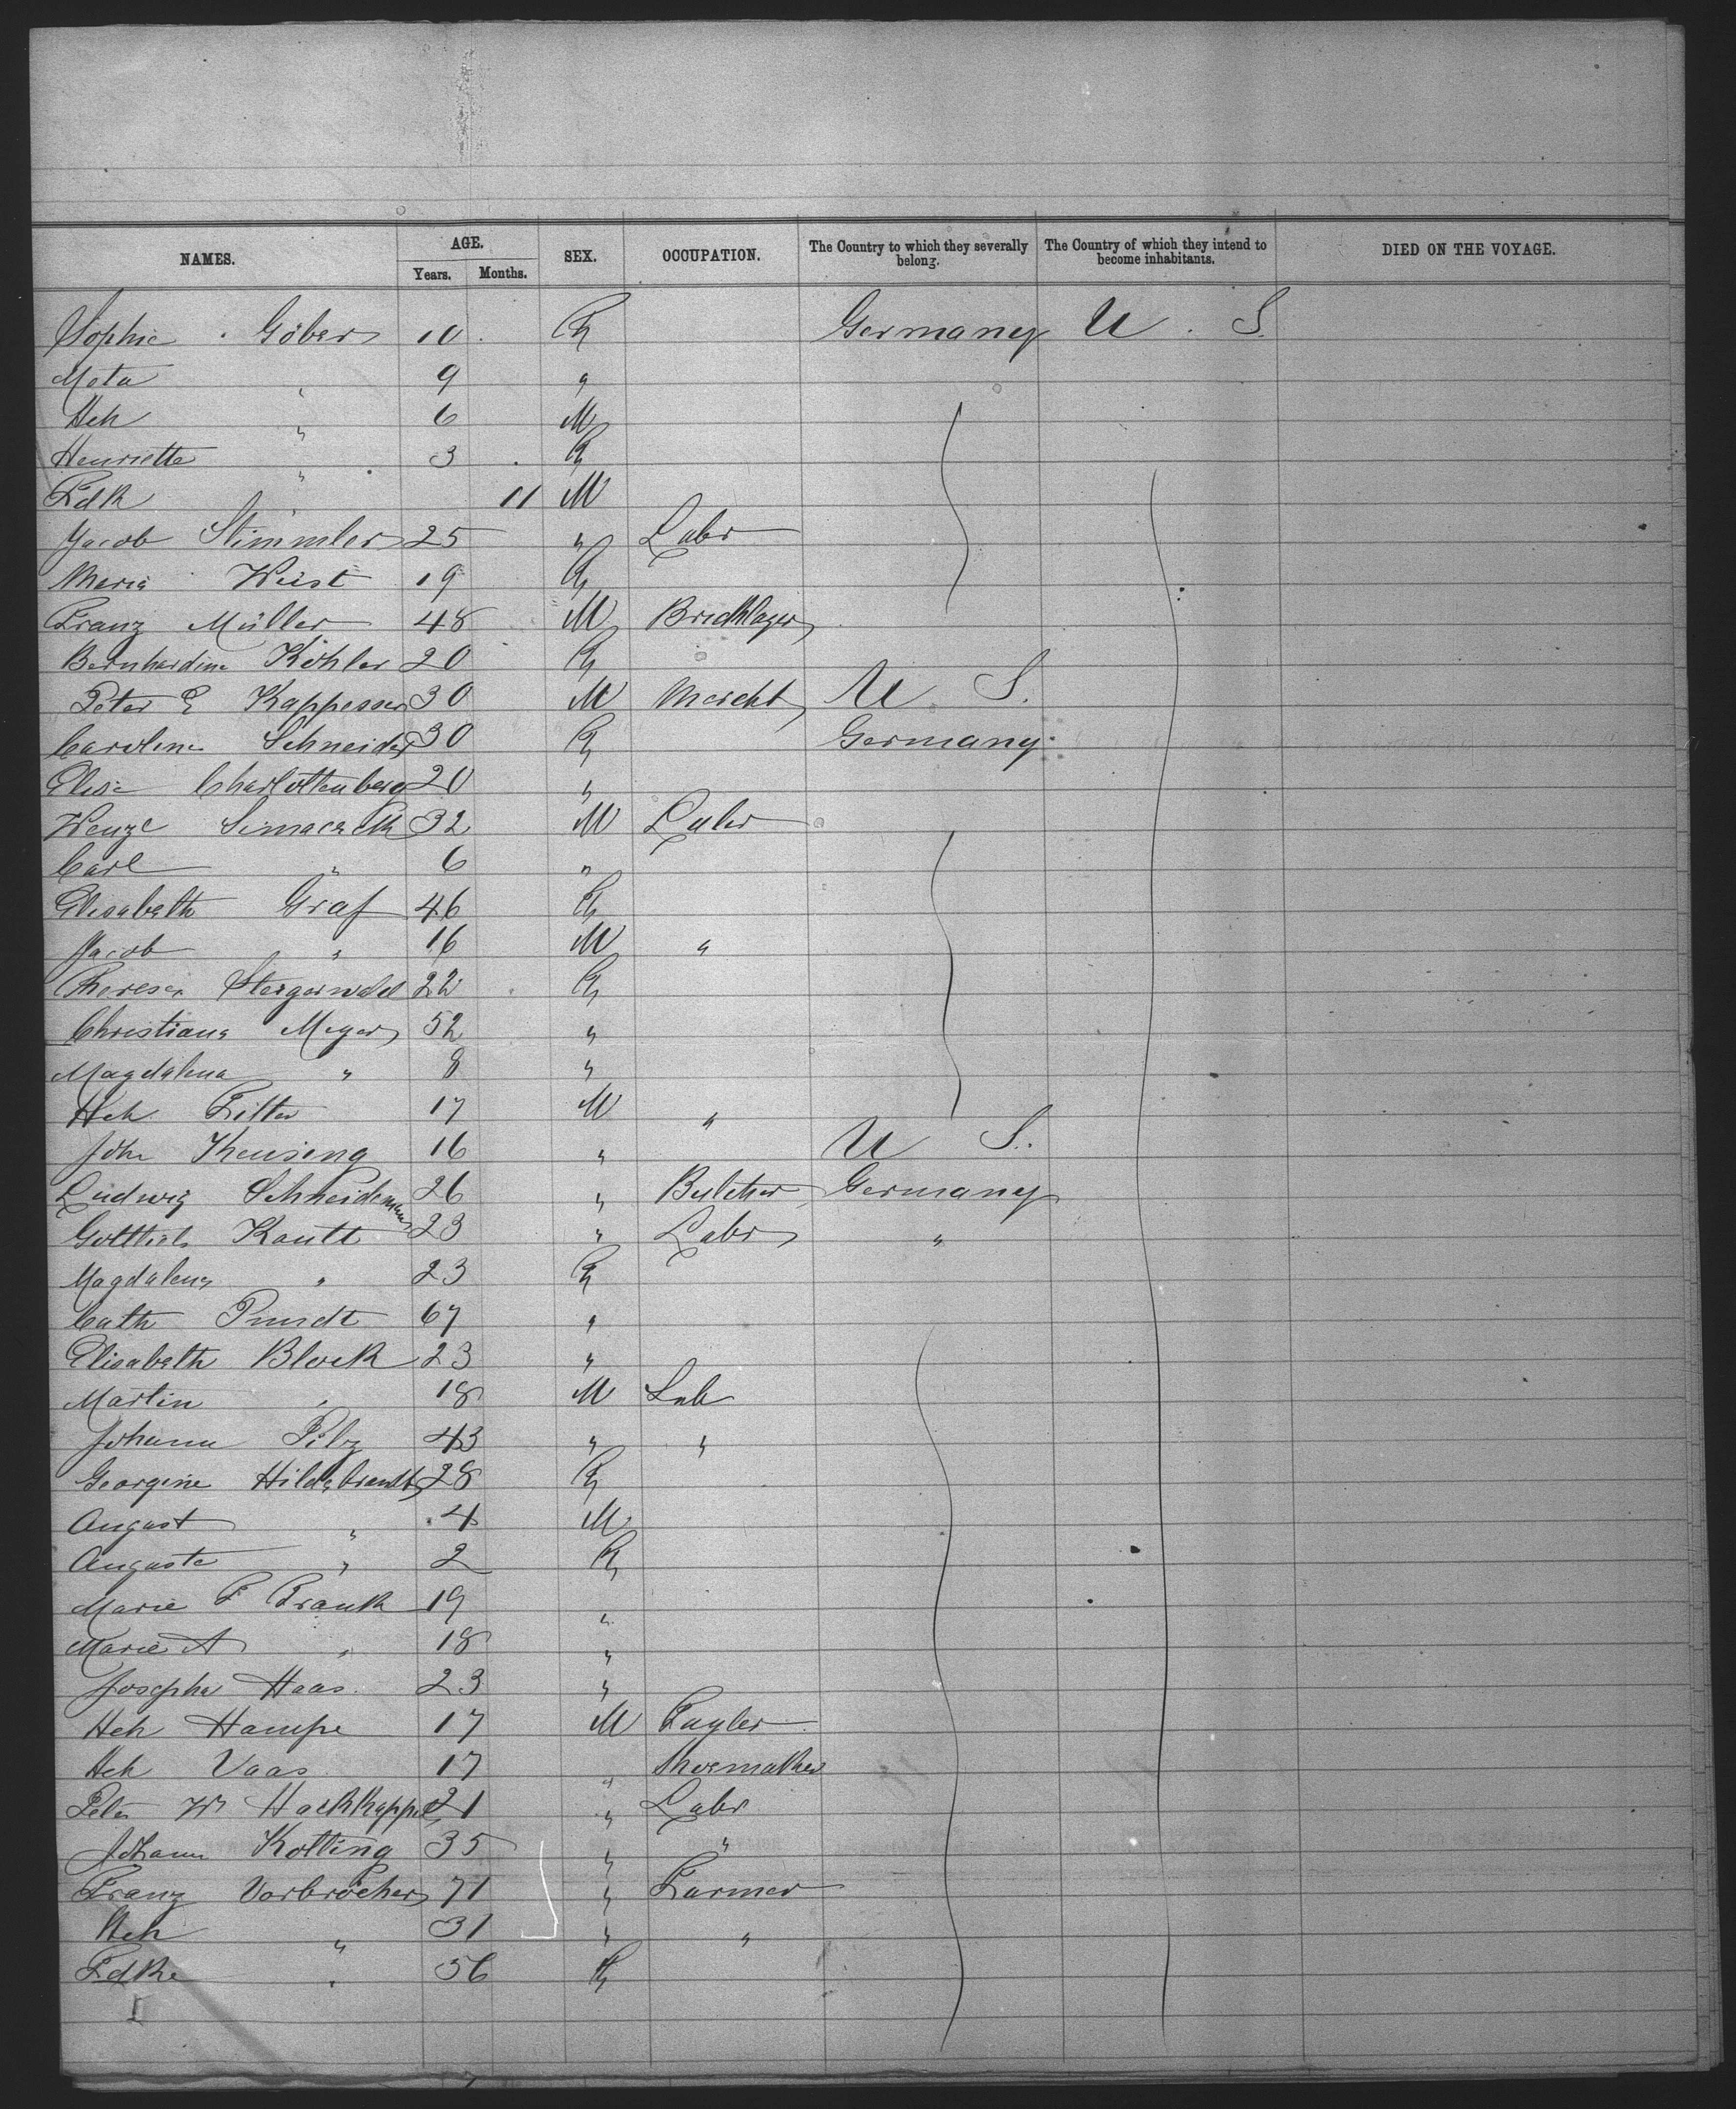 NAMES. AGE. SEX. OCCUPATION. The Country to which they severally belong. The Country of which they intend to become inhabitants. DIED ON THE VOYAGE.
Years. Months.
Sophie Göber 10 F Germany U. S.
Meta " 9 "
Hch " 6 M
Henriette " 3 F
Fdk " 11 M
Jacob Stimmler 25 " Labr
Maria Wüst 19 F
Franz Müller 48 M Bricklayer
Bernhardine Köhler 20 F
Peter E Kappesser 30 M Mercht U S.
Caroline Schneider 30 F Germany
Elise Charlottenberg 20 "
Wenzl 32 M Labr
Carl " 6 "
Elisabeth Graf 46 F
Jacob " 16 M "
Theresa 22 F
Christiana Meyer 52 "
Magdalena " 8 "
Hch 17 M "
John 16 " U S.
Ludwig Schneidemann 26 " Butcher Germany
Gottlieb Kautt 23 " Labr "
Magdalena " 23 F
Cath Pundt 67 "
Elisabeth Block 23 "
Martin " 18 M Lab
Johann Pilz 43 " "
Georgine Hildebrandt 28 F
August " 4 M
Auguste " 2 F
Marie F Frank 19 "
Marie A " 18 "
Josepha Haas 23 "
Hch Hampe 17 M Taylor
Hch Vaas 17 " Shoemaker
Peter W Hackkappel 21 " Labr
Johann Kotting 35 " "
Franz Vorbröcher 71 " Farmer
Hch " 31 " "
Fdke " 56 F